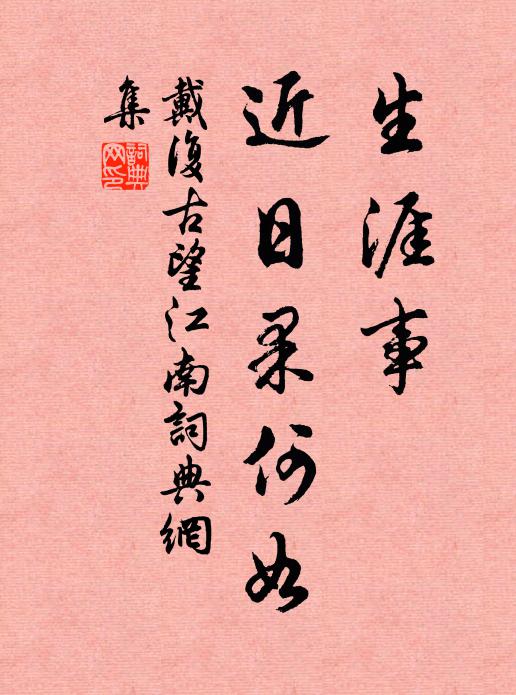 生涯事
近日果何如
戴復古望江南詞典網
集
詞典網印